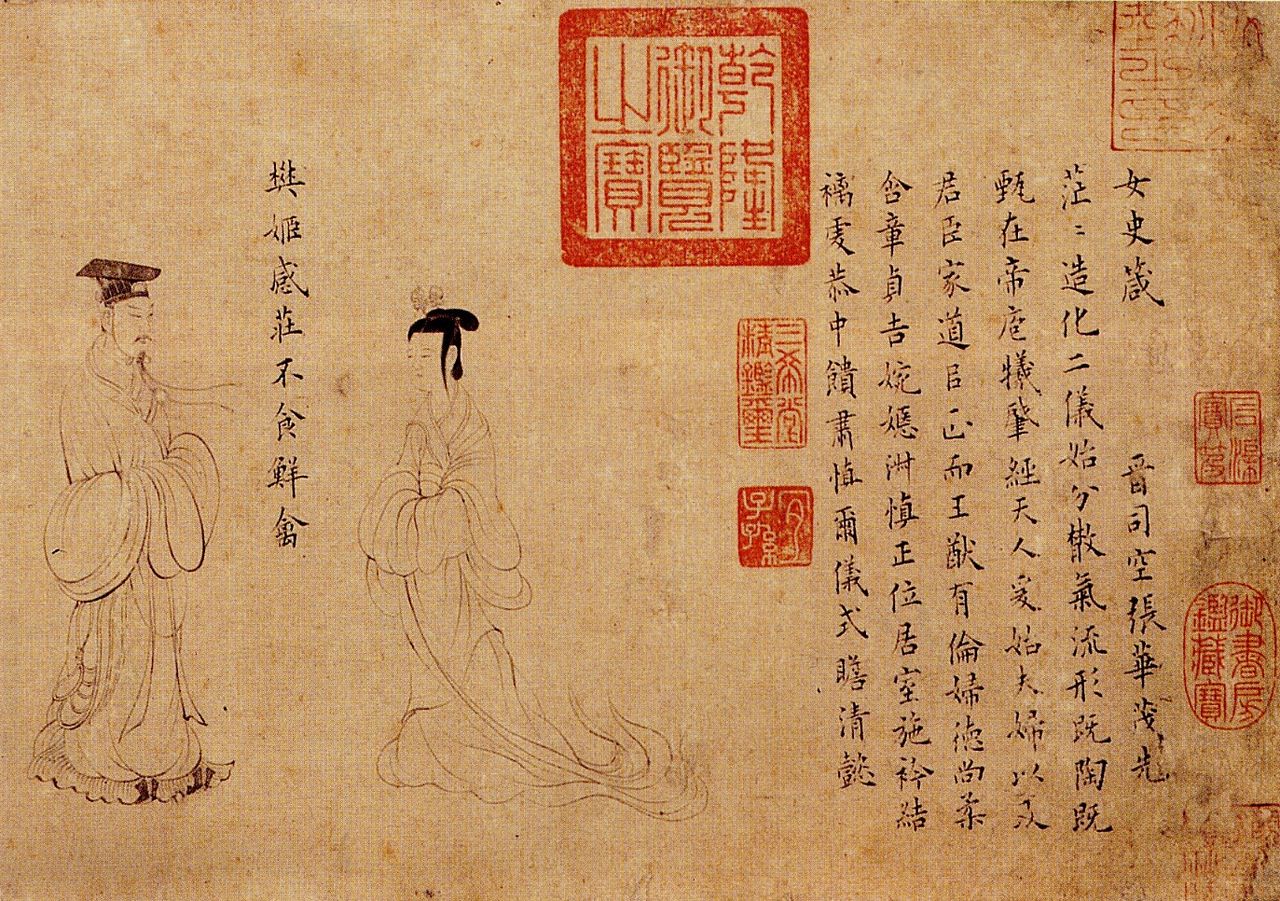 石渠寶笈
御書房鑑藏寶
女史箴 晉司空張華茂先
茫〻造化二儀始分散氣流形既陶既
甄在帝庖犧肇經天人爰始夫婦以及
君臣家道㠯正而王猷有倫婦德尚柔
含章貞吉婉嫕淑慎正位居室施衿結
褵虔恭中饋肅慎爾儀式瞻清懿
乾隆御覽之寶
三希堂精鑑璽
宜子孫
樊姬感莊不食鮮禽